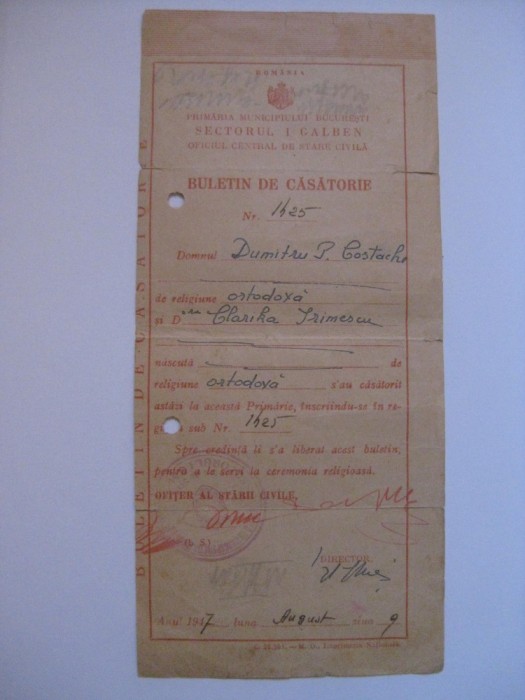 ROMÂNIA
PRIMĂRIA MUNICIPIULUI BUCUREȘTI
SECTORUL I GALBEN
OFICIUL CENTRAL DE STARE CIVILĂ
BULETIN DE CĂSĂTORIE
Nr. 1425
Domnul Dumitru P. Costache
de religiune ortodoxă
și D Clarika Irimescu
născută de
religiune ortodoxă s'au căsătorit
astăzi la această Primărie, înscriindu-se în re-
sub Nr. 1425
Spre credință li s'a liberat acest buletin,
pentru a le servi la ceremonia religioasă.
OFIȚER AL STĂRII CIVILE,
DIRECTOR,
Anul 1947 luna August ziua 9
BULETIN DE CĂSĂTORIE